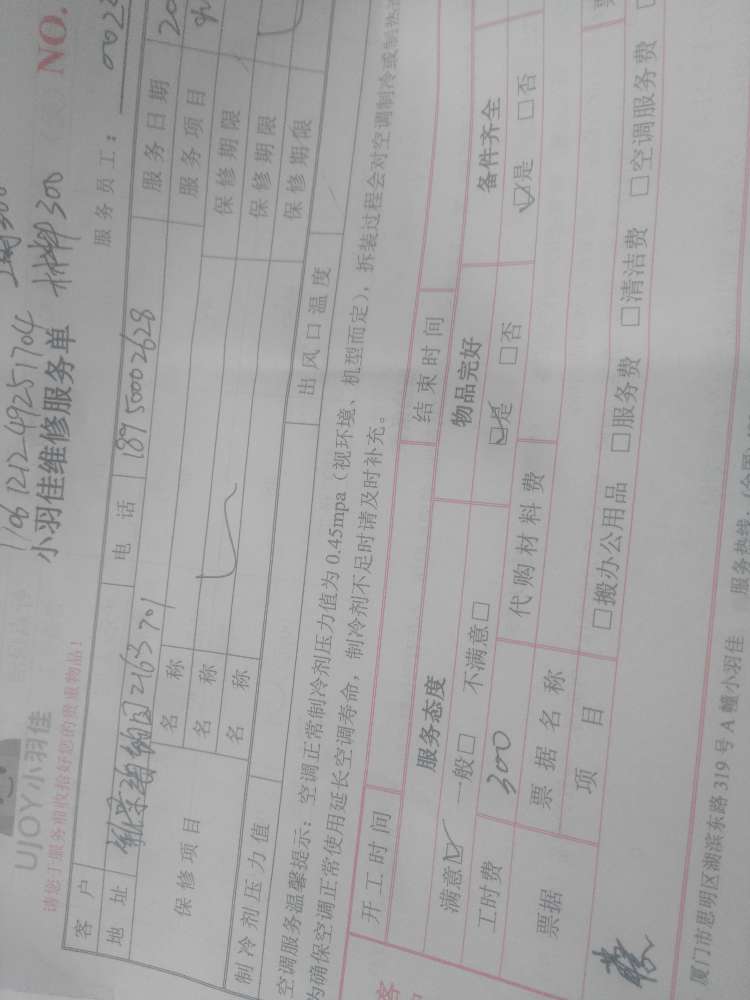 1106 1212-49251704
UJOY小羽佳
小羽佳维修服务单 材料300
NO.
请您于服务前收拾好您的贵重物品！
服务员工：002
客户
地址 2163 701 电话 18950002628 服务日期 20
保修项目 名称 服务项目
名称 保修期限
名称 保修期限
制冷剂压力值 出风口温度 保修期限
空调服务温馨提示：空调正常制冷剂压力值为 0.45mpa（视环境、机型而定），拆装过程会对空调制冷或制热
为确保空调正常使用延长空调寿命，制冷剂不足时请及时补充。
开工时间 结束时间
服务态度 物品完好 备件齐全
满意☑ 一般□ 不满意□ ☑是 □否 ☑是 □否
工时费 300 代购材料费
票据 票据名称
项目 □搬办公用品 □服务费 □清洁费 □空调服务费
客
厦门市思明区湖滨东路 319 号 A 幢小羽佳 服务热线